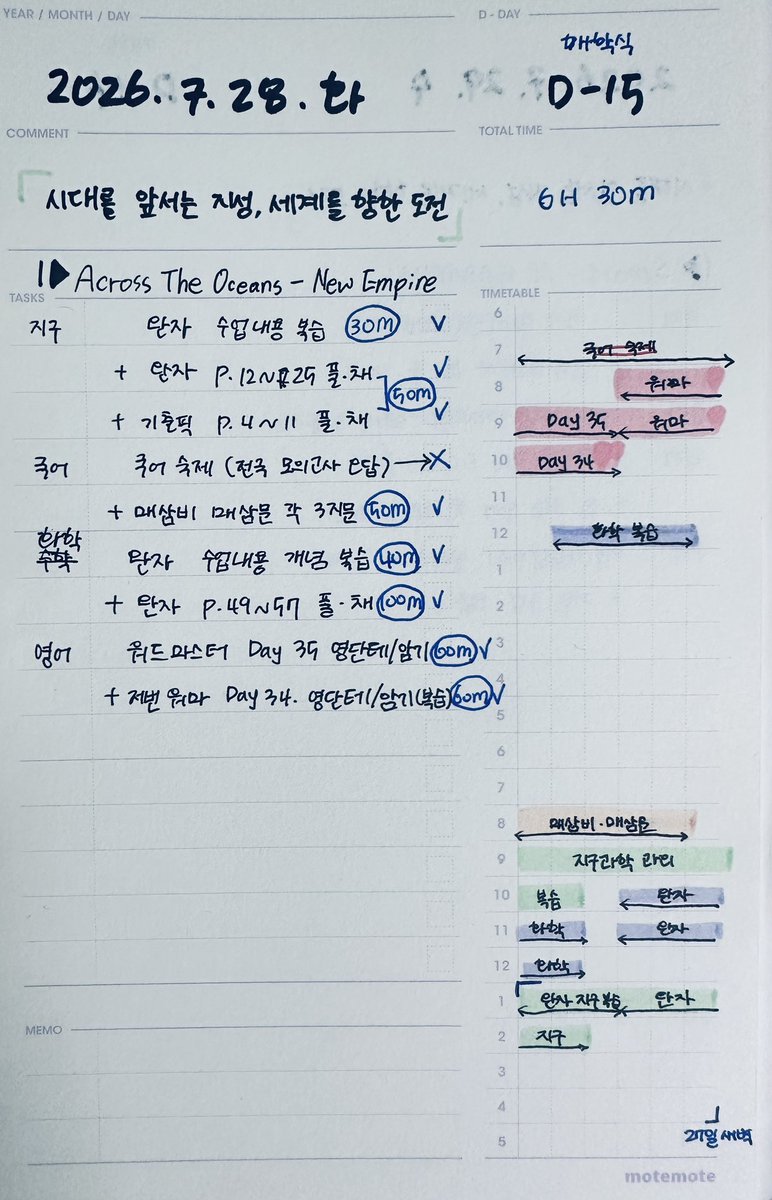 YEAR / MONTH / DAY
D - DAY
2026. 7. 28. 화
개학식
D-15
COMMENT
TOTAL TIME
시대를 앞서는 지성, 세계를 향한 도전
6H 30M
1▶ Across The Oceans - New Empire
TASKS
TIMETABLE
지구 완자 수업내용 복습 30m ✓
+ 완자 p.12~p.25 풀·채 ✓
50m
+ 기출픽 p.4~11 풀·채 ✓
국어 국어 숙제 (전국 모의고사 오답) → X
+ 매삼비 매삼문 각 3지문 50m ✓
화학
수학
완자 수업내용 개념 복습 40m ✓
+ 완자 p.49~57 풀·채 100m ✓
영어 워드마스터 Day 35 영단테/암기 60m ✓
+ 저번 워마 Day 34. 영단테/암기(복습) 60m ✓
6
7 국어 숙제
8 워마
9 Day 35 워마
10 Day 34
11
12 화학 복습
1
2
3
4
5
6
7
8 매삼비·매삼문
9 지구과학 과외
10 복습 완자
11 화학 완자
12 화학
1 완자 지구 복습 완자
2 지구
3
4
5
MEMO
27일 새벽
motemote